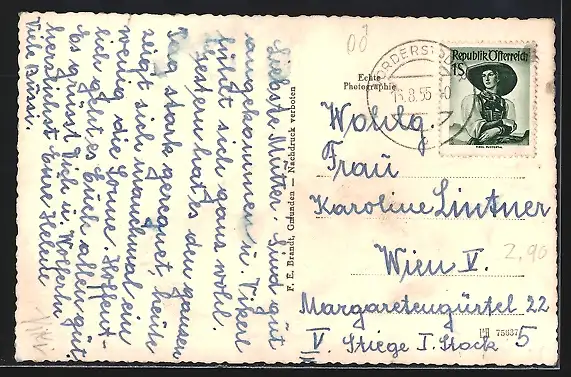 Liebste Mutter. Sind gut
angekommen u. Vikerl
fühlt sich ganz wohl.
Gestern hat's den ganzen
Tag stark geregnet, heute
zeigt sich manchmal ein
wenig die Sonne. Hoffent-
lich geht es Euch allen gut.
Es grüsst Dich u.
herzlichst Eure
Viele Bussi.
F. E. Brandt, Gmunden — Nachdruck verboten
Echte
Photographie
Republik Österreich
1S
13.8.55
Wohlg.
Frau
Karoline Lintner
Wien V.
Margaretengürtel 22
V. Stiege I. Stock 5
2,90